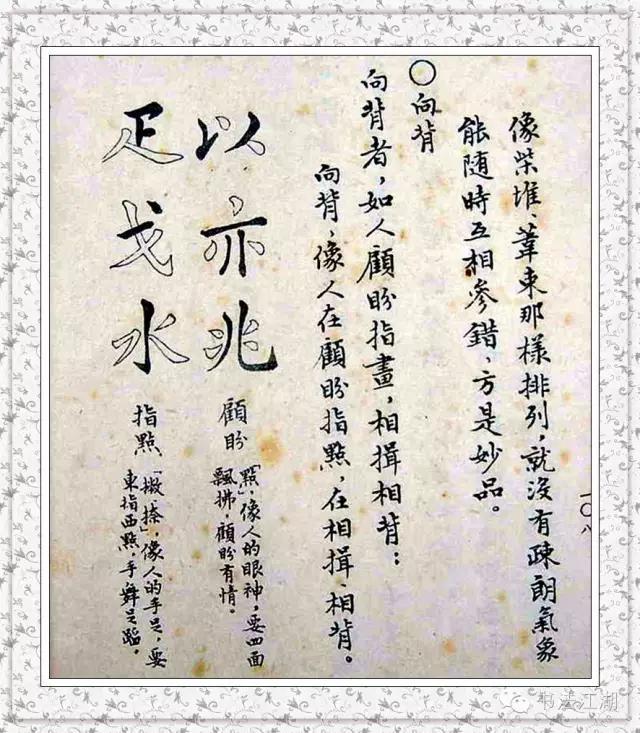 像柴堆、葦束那樣排列，就沒有疎朗氣象
能隨時互相參錯、方是妙品。
〇向背
向背者，如人顧盼指畫，相揖相背：
向背，像人在顧盼指點，在相揖、相背。
以亦兆
顧盼
「點」，像人的眼神，要四面
飄拂，顧盼有情。
疋戈水
指點
「撇、捺」，像人的手足，要
東指西點，手舞足蹈。
一〇八
书法江湖